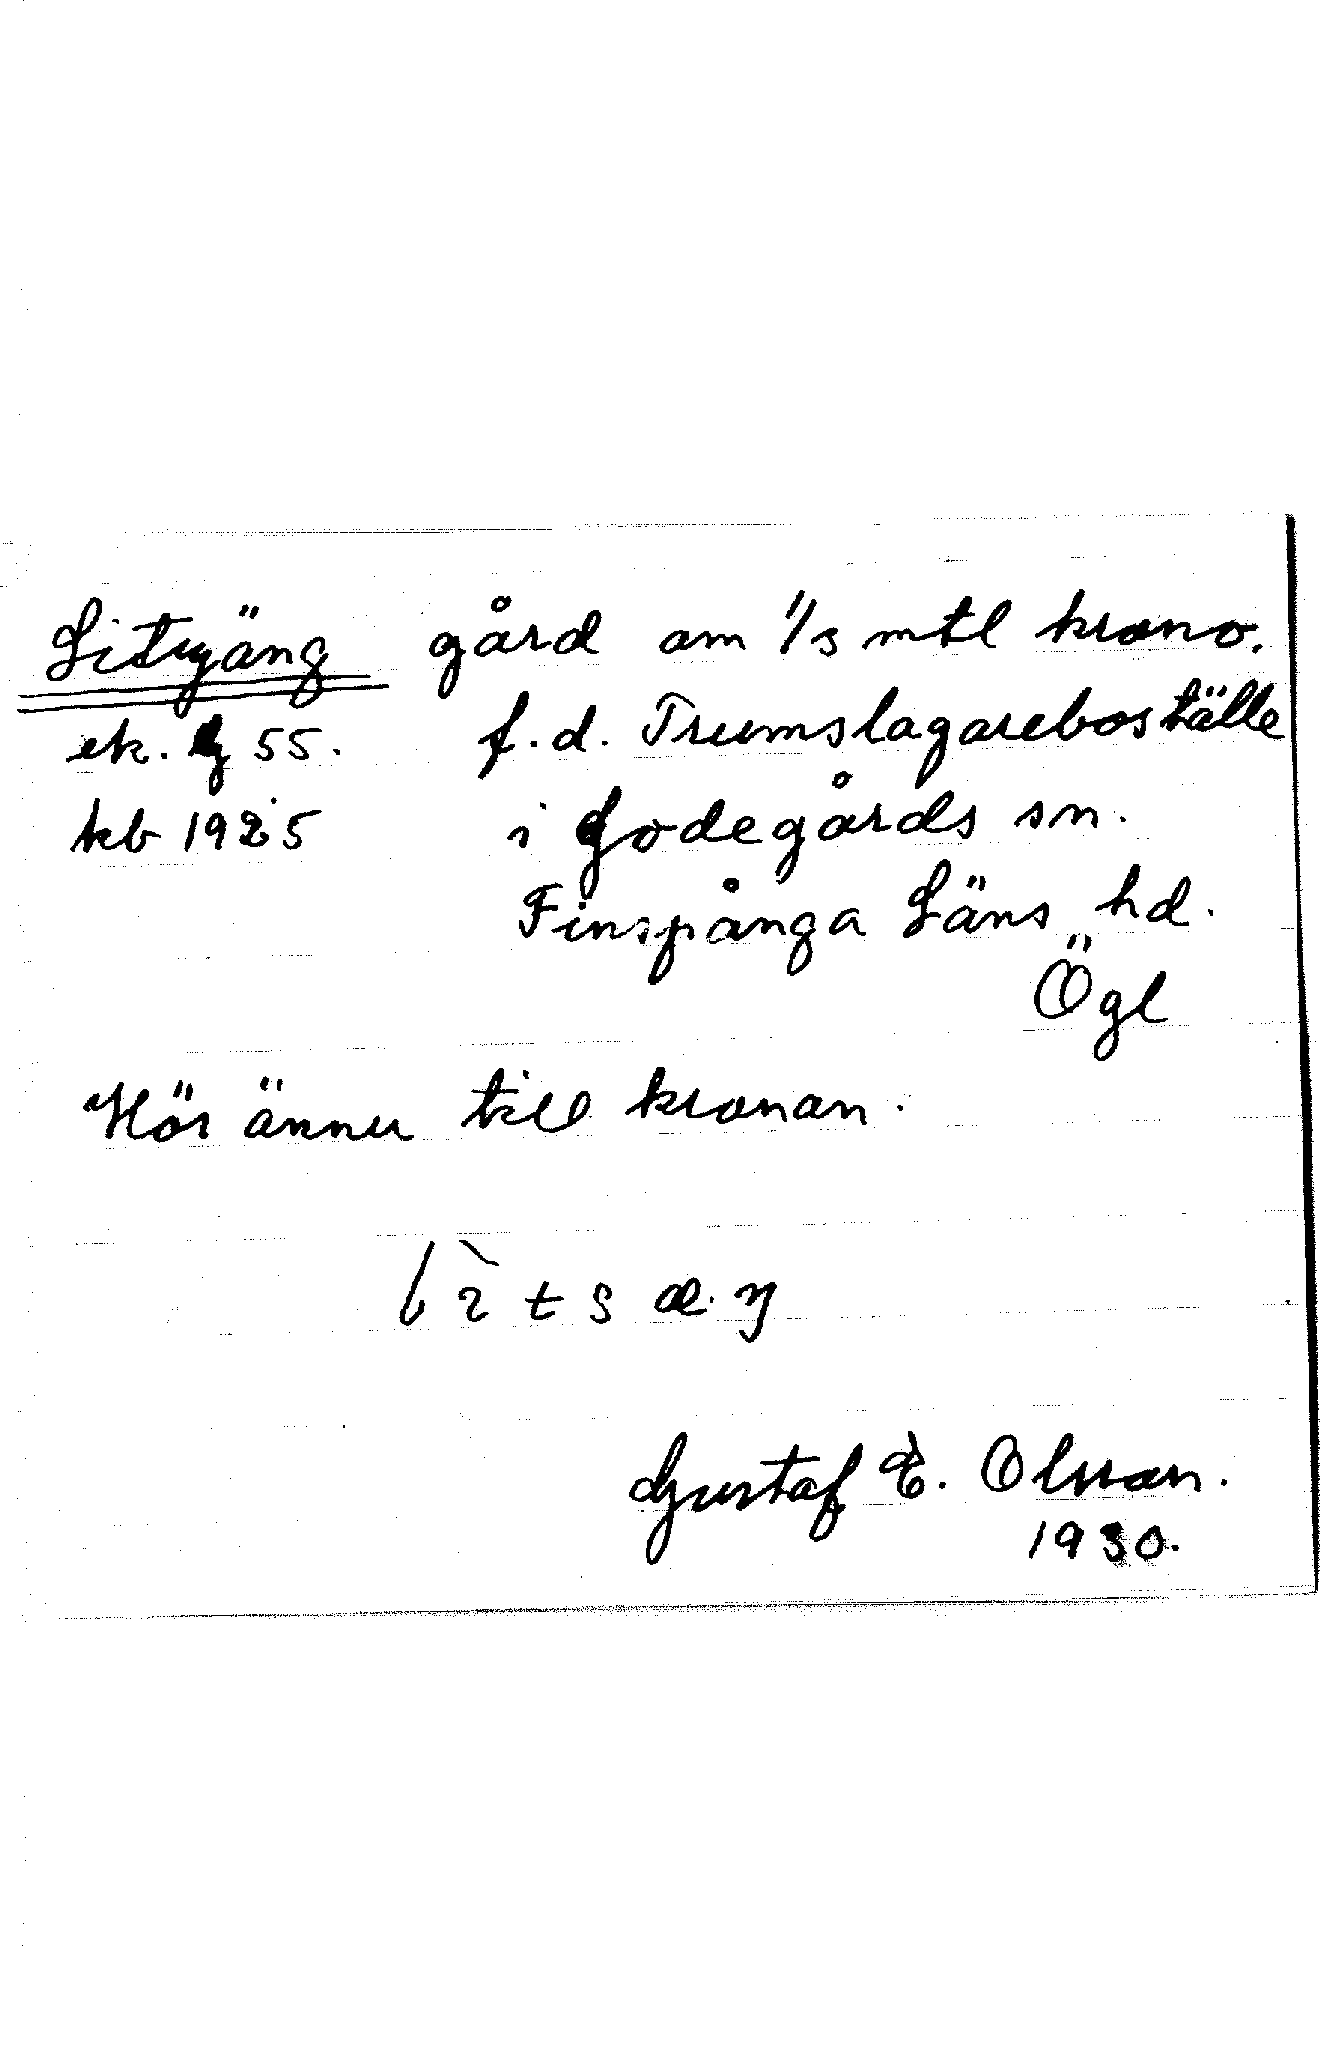 Litsäng gård om 1/3 mtl krono.
ek. g 55. f.d. Trumslagareboställe
kb 1925 i Godegårds sn.
Finspånga Läns hd.
Ögl
Hör ännu till kronan.
Gustaf E. Olsson.
1930.